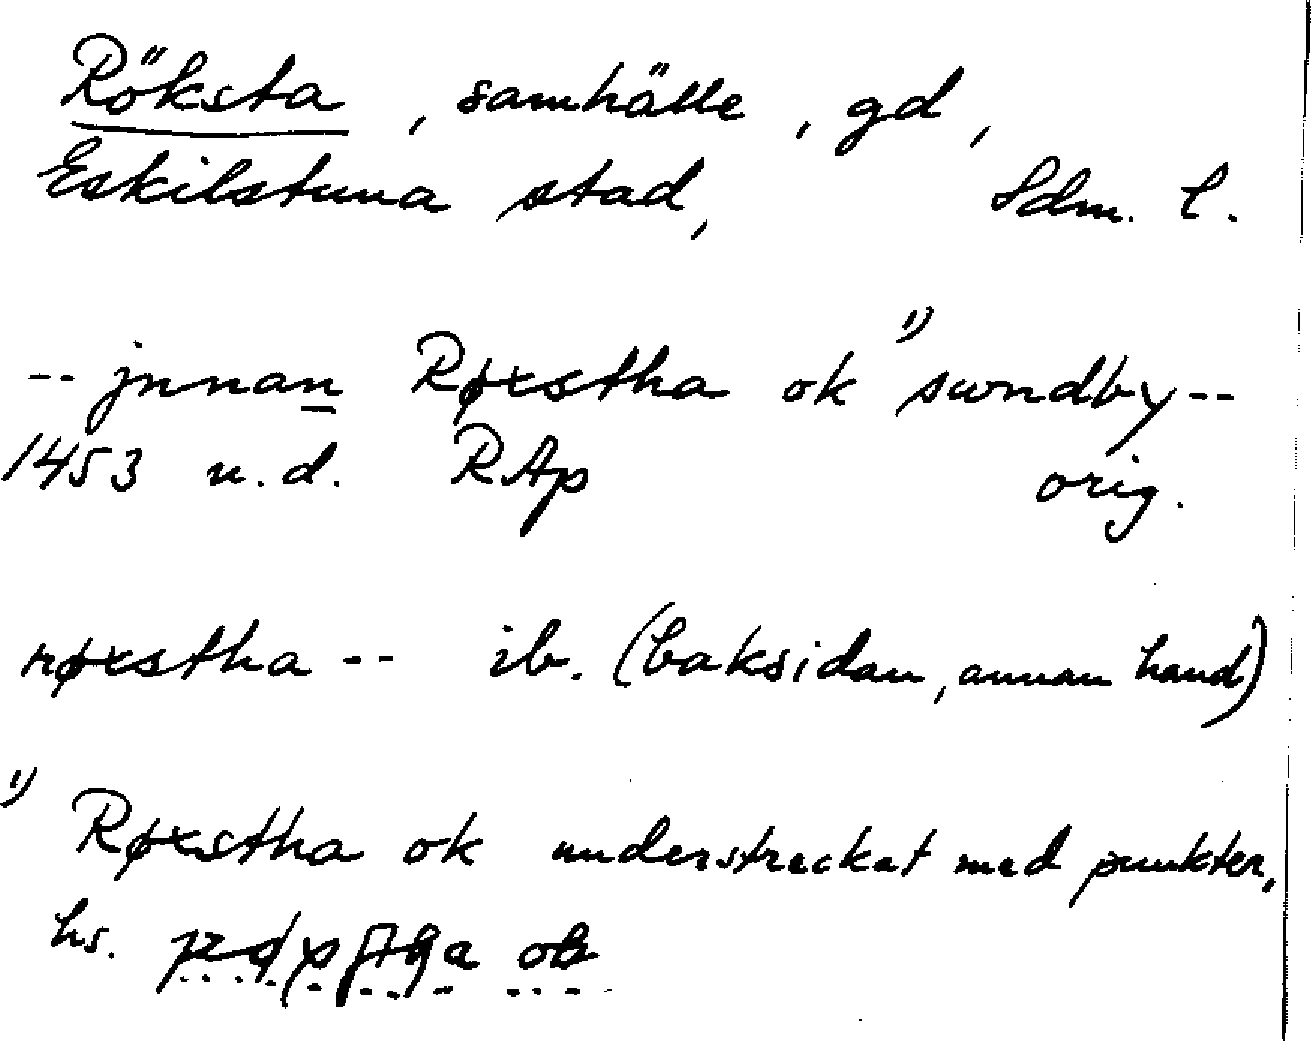 Röksta, samhälle, gd,
Eskilstuna stad, Sdm. l.
-- jnnan Røxstha ok ¹⁾ sundby --
1453 u.d. RAp orig.
røxstha -- ib. (baksidan, annan hand)
¹⁾ Røxstha ok understrecket med punkter,
hs. røxstha ok